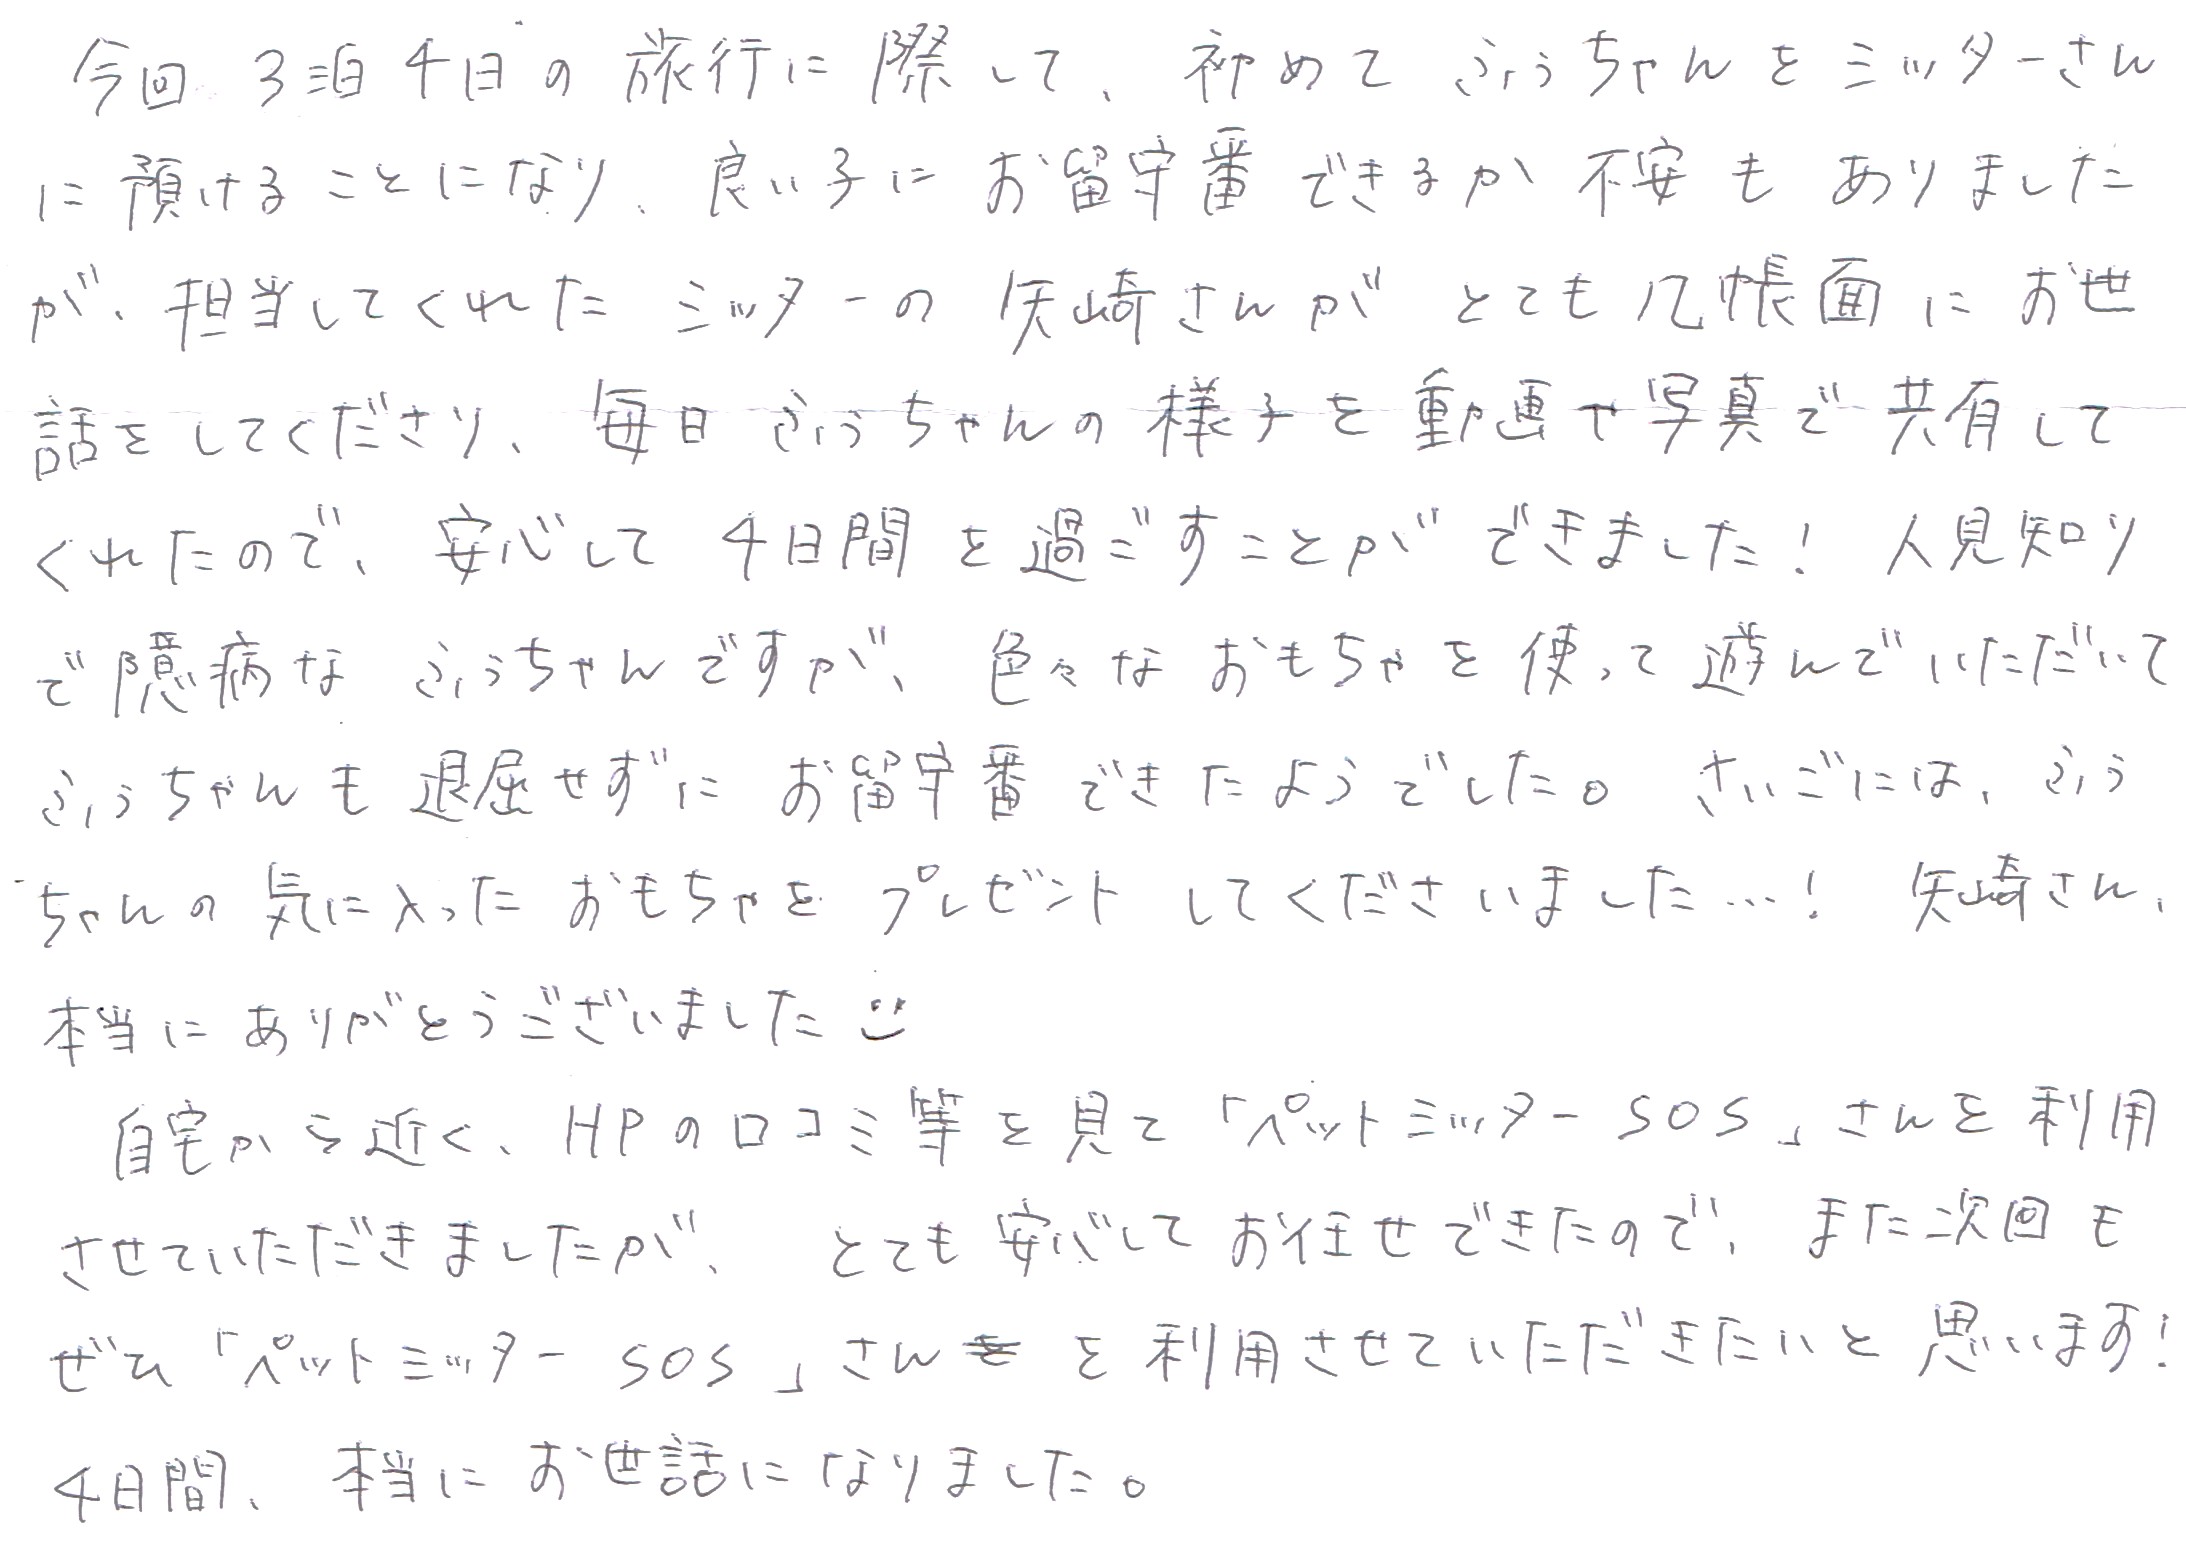 今回、3泊4日の旅行に際して、初めてふぅちゃんをミッターさん
に預けることになり、良い子にお留守番できるか不安もありました
が、担当してくれたミッターの矢崎さんがとても几帳面にお世
話をしてくださり、毎日ふぅちゃんの様子を動画や写真で共有して
くれたので、安心して4日間を過ごすことができました！人見知り
で臆病なふぅちゃんですが、色々なおもちゃを使って遊んでいただいて
ふぅちゃんも退屈せずにお留守番できたようでした。さいごには、ふぅ
ちゃんの気に入ったおもちゃをプレゼントしてくださいました…！矢崎さん、
本当にありがとうございました
自宅から近く、HPの口コミ等を見て「ペットミッターSOS」さんを利用
させていただきましたが、とても安心してお任せできたので、また次回も
ぜひ「ペットミッターSOS」さんを利用させていただきたいと思います！
4日間、本当にお世話になりました。